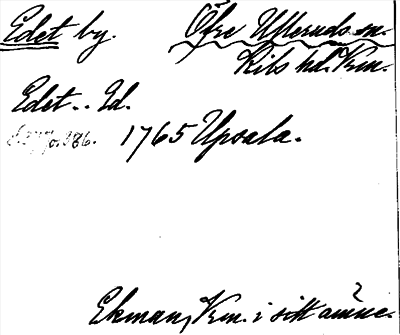 Edet by. Öfre Ulleruds sn.
Kils hd. Vrm.
Edet.. Id.
1765 Upsala.
Ekman, Vrm. i sitt ämne.